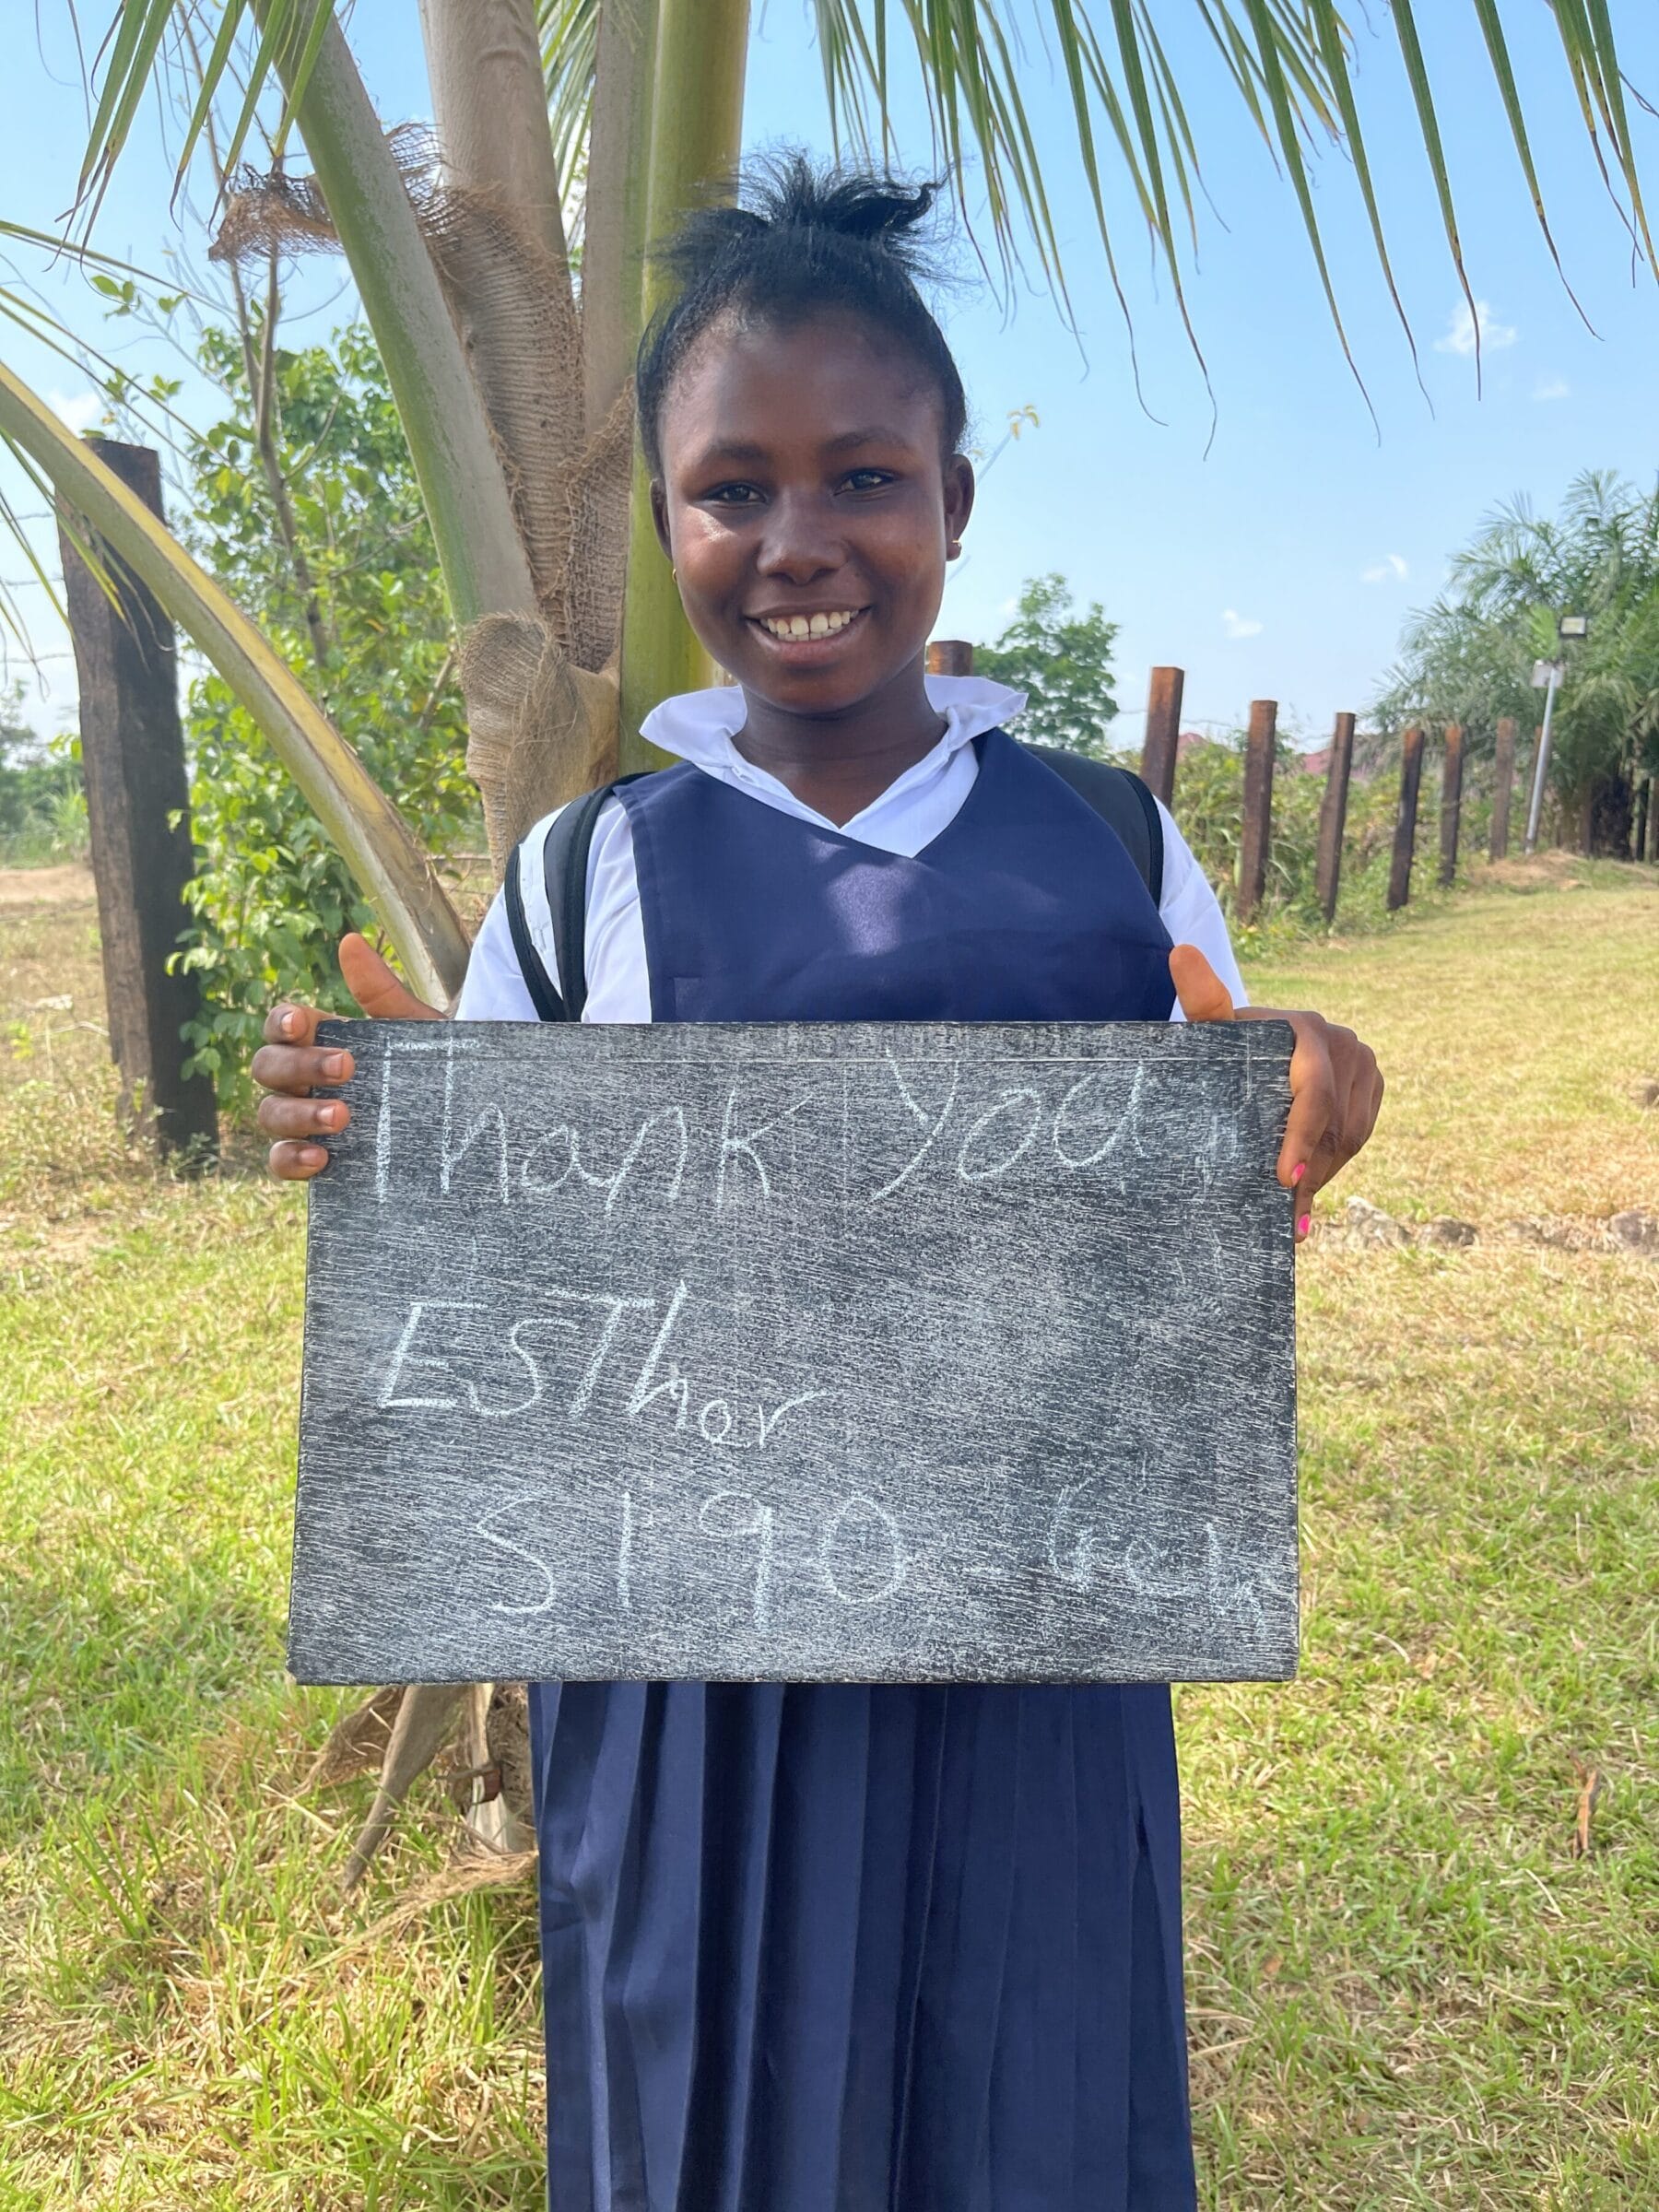 Thank you
ESTher
S190